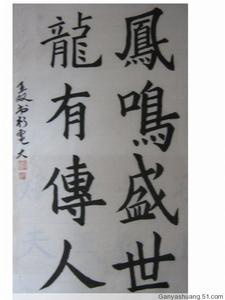 鳳鳴盛世
龍有傳人
書於電大
Ganyashuang.51.com